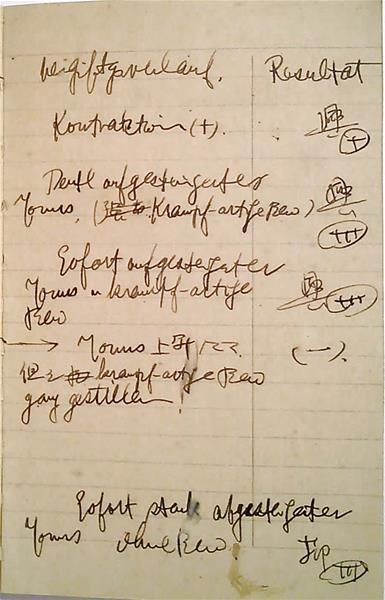 Vergiftgsverlauf. Resultat
Kontraktion (+). 興 (+)
Deutl aufgesteigerter
Tonus, (Krampf-artige Bew) 興 (+++)
Sofort aufgesteigerter
Tonus u krampf-artige 興 (+++)
Bew
→ Tonus 上昇 (—).
但シ krampf-artige Bew
ganz gestillen
Sofort stark afgesteigerter
Tonus ohne Bew. (+++)